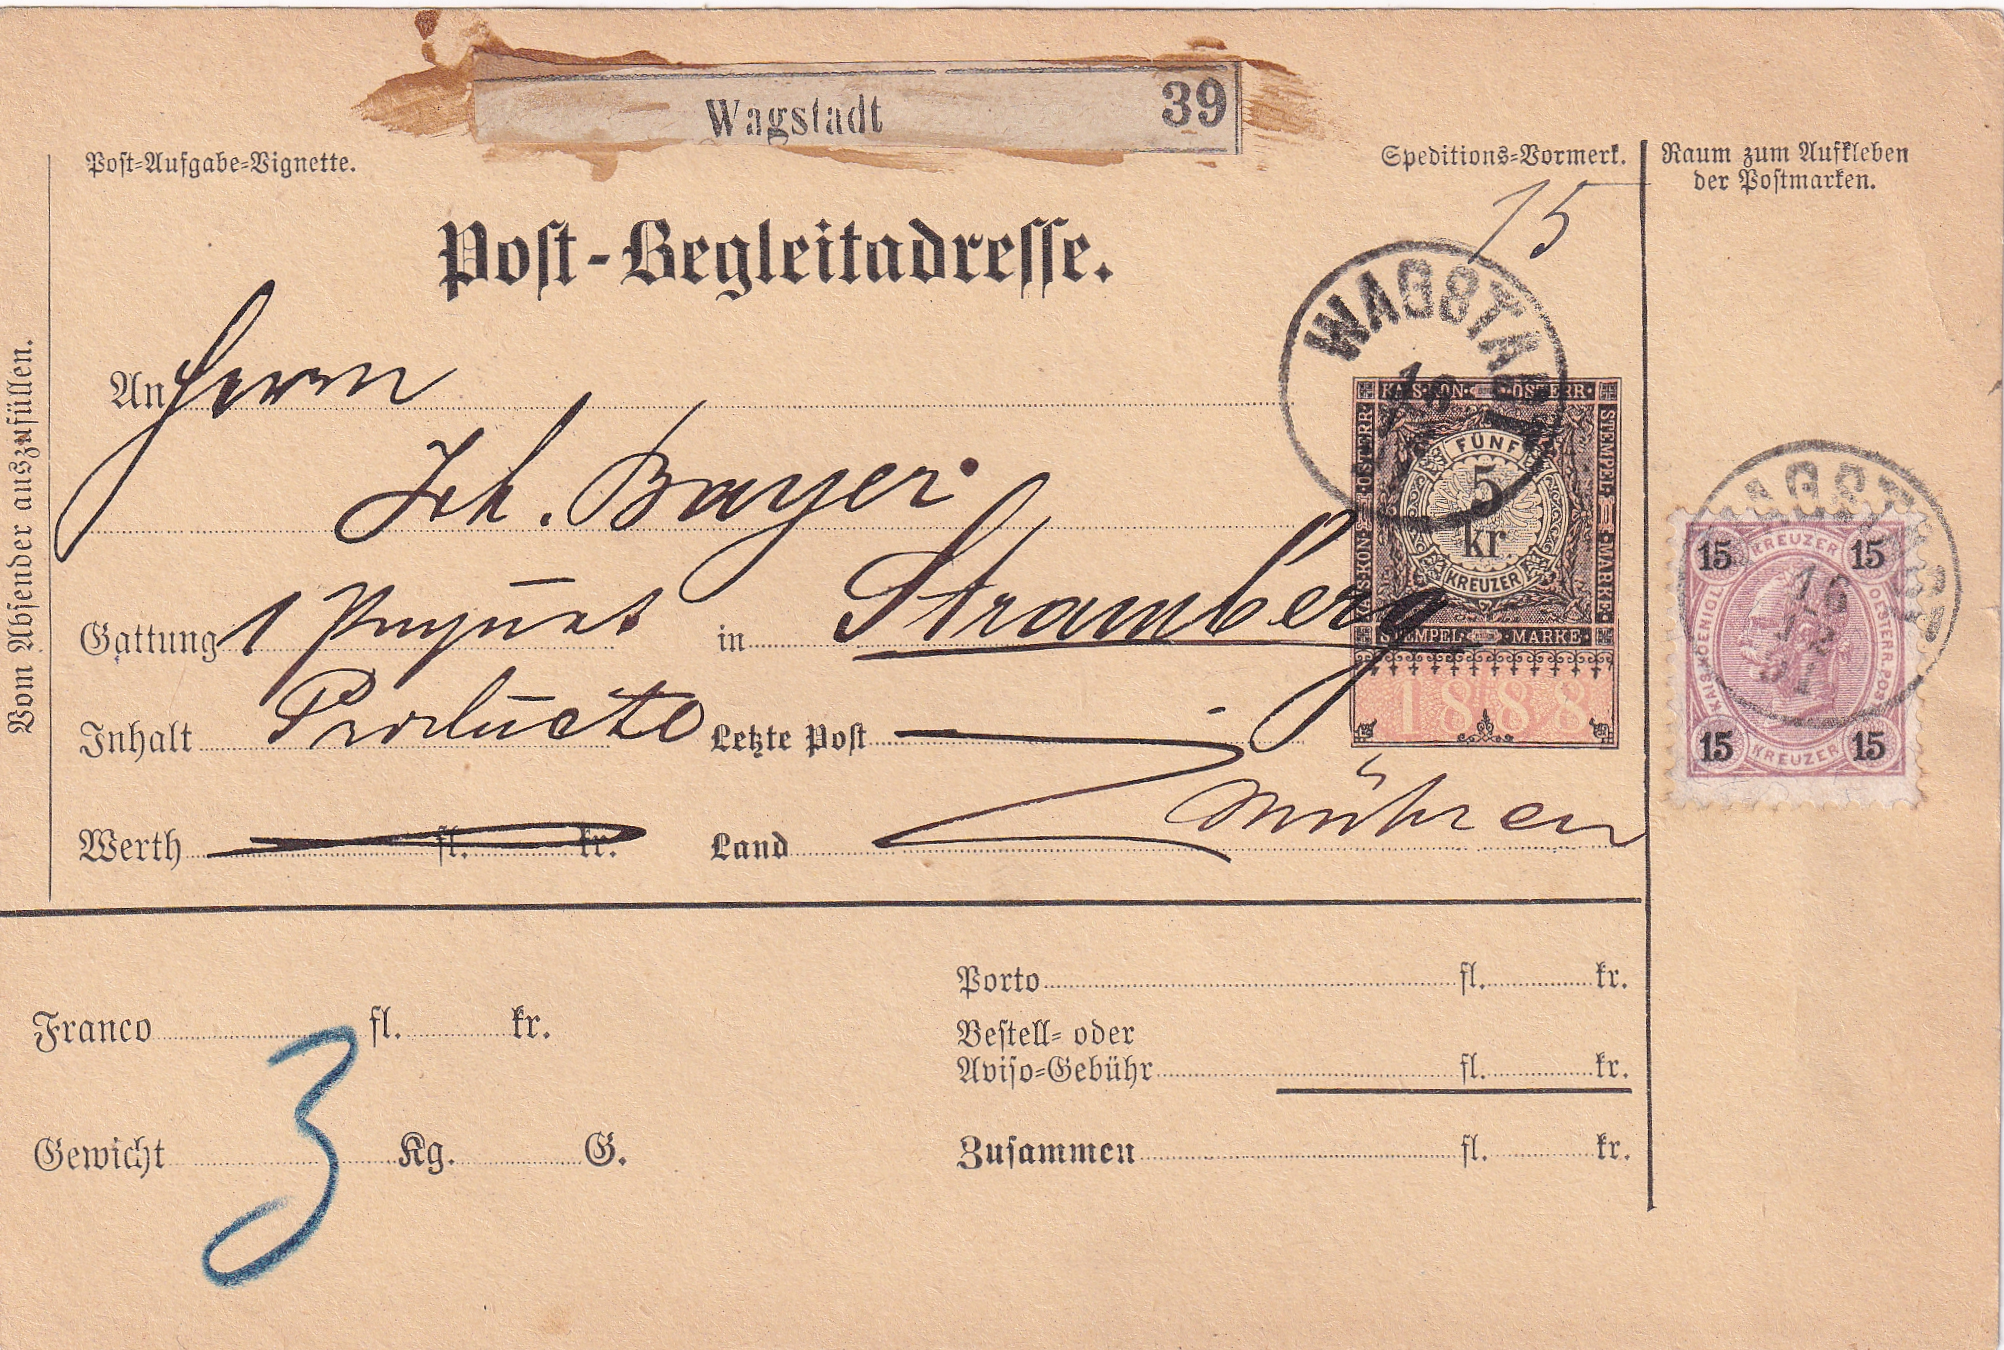 Wagstadt 39
Post-Aufgabe-Vignette.
Speditions-Vormerk.
Raum zum Aufkleben
der Postmarken.
15
Post-Begleitadresse.
WAGSTADT
Vom Absender auszufüllen.
An Herrn
Joh. Bayer
Gattung 1 Paquet in Stramberg
Inhalt Producte Letzte Post
Werth fl. kr. Land Mähren
KAIS·KÖN· ÖSTERR·
STEMPEL MARKE
FÜNF
5
kr.
KREUZER
KAIS·KÖN· ÖSTERR·
STEMPEL MARKE
1888
WAGSTADT
16
15 KREUZER 15
KAIS. KOENIGL. OESTERR. POST
15 KREUZER 15
Franco fl. kr.
Gewicht 3 Kg. G.
Porto fl. kr.
Bestell- oder
Aviso-Gebühr fl. kr.
Zusammen fl. kr.